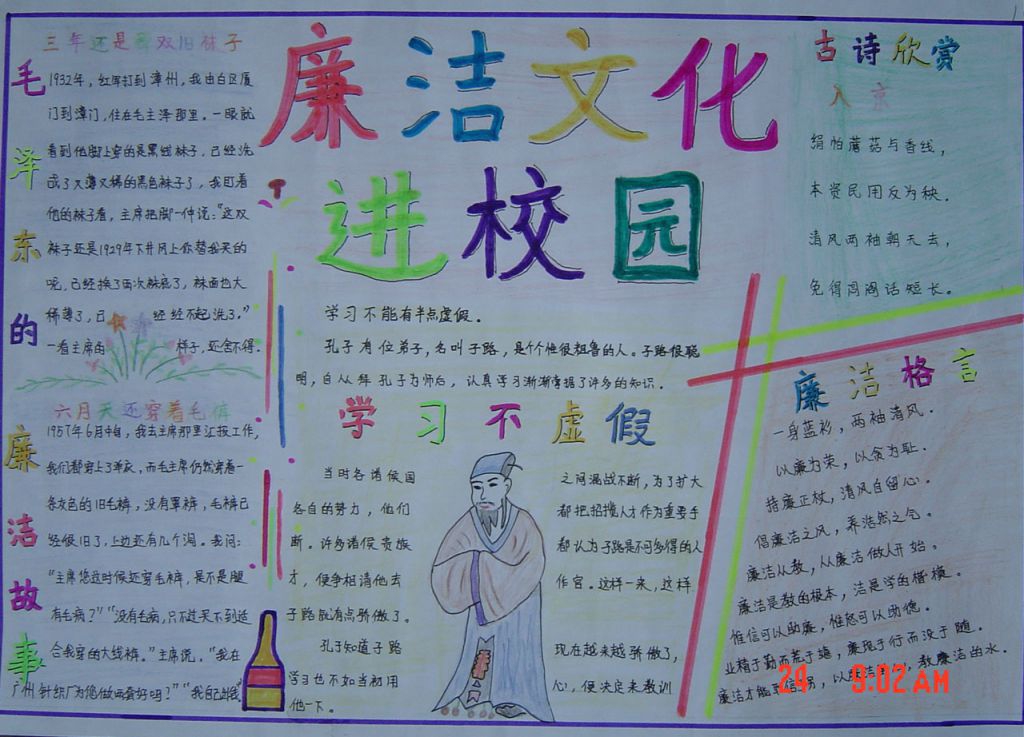 廉洁文化
进校园
毛泽东的廉洁故事
三年还是双旧袜子
1932年，红军打到漳州，我由白区厦
门到漳门，住在毛主泽那里。一眼就
看到他脚上穿的是黑线袜子，已经洗
成了又薄又稀的黑色袜子了，我盯着
他的袜子看，主席把脚一伸说："这双
袜子还是1929年下井冈上你替我买的
呢，已经换了两次袜底了，袜面也大
稀薄了，已经经不起洗了。"
一看主席的样子，还舍不得。
六月天还穿着毛裤
1957年6月中旬，我去主席那里汇报工作，
我们都穿上了单衣，而毛主席仍然穿着一
条灰色的旧毛裤，没有罩裤，毛裤已
经很旧了，上边还有几个洞。我问：
"主席您这时候还穿毛裤，是不是腿
有毛病？""没有毛病，只不过买不到适
合我穿的大线裤。"主席说，"我在
广州针织厂为您做两套好吗？""我自己出钱
学习不能有半点虚假。
孔子有位弟子，名叫子路，是个个性很粗鲁的人。子路很聪
明，自从拜孔子为师后，认真学习渐渐掌握了许多的知识。
学习不虚假
当时各诸侯国之间混战不断，为了扩大
各自的努力，他们都把招揽人才作为重要手
断。许多诸侯贵族都认为子路是不可多得的人
才，便争相请他去作官。这样一来，这样
子路就有点骄傲了。
孔子知道子路现在越来越骄傲了，
学习也不如当初用心，便决定来教训
他一下。
古诗欣赏
入京
绢怕蘑菇与香线，
本资民用反为秧。
清风两袖朝天去，
免得闾阎话短长。
廉洁格言
一身蓝衫，两袖清风。
以廉为荣，以贪为耻。
持廉正杖，清风自留心。
倡廉洁之风，养浩然之气。
廉洁从教，从廉洁做人开始。
廉洁是教的根本，洁是学的楷模。
惟信可以助廉，惟恕可以助德。
业精于勤而荒于嬉，廉现于行而没于随。
廉洁才能，教廉洁的水。
24 9:02AM